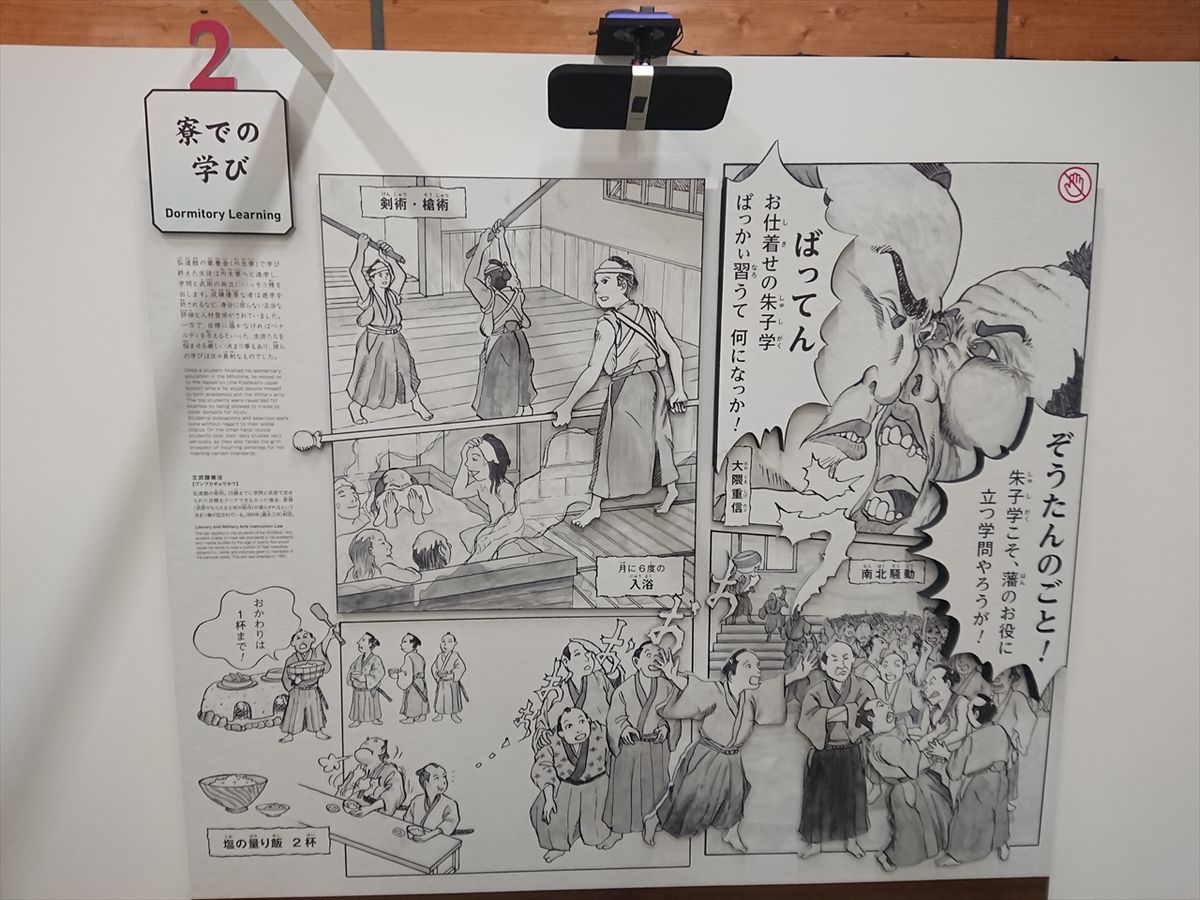 2
寮での
学び
Dormitory Learning
弘道館の蒙養舎(外生寮)で学び
終えた生徒は内生寮へと進学し、
学問と武術の両立にいっそう精を
出します。成績優秀な者は遊学を
許されるなど、身分に依らない正当な
評価と人材登用がされていました。
一方で、目標に届かなければペナ
ルティを与えるといった、生徒たちを
悩ませる厳しい決まり事もあり、彼ら
の学びは日々真剣なものでした。
Once a student finished his elementary
education in the Mōyōsha, he moved on
to the Naiseiryo (the Kōdōkan's upper
school) where he would devote himself
to both academics and the military arts.
The top students were rewarded for
example by being allowed to travel to
other domains for study.
Students' evaluations and selection were
done without regard to their social
status. On the other hand, novice
students took their daily studies very
seriously, as they also faced the grim
prospect of incurring penalties for not
meeting certain standards.
文武課業法
【ブンブカギョウホウ】
Literary and Military Arts Instruction Law
剣術・槍術
月に6度の
入浴
おかわりは
1杯まで!
塩の量り飯 2杯
ばってん
お仕着せの朱子学
ばっかい習うて 何になっか!
大隈重信
ぞうたんのごと!
朱子学こそ、藩のお役に
立つ学問やろうが!
南北騒動